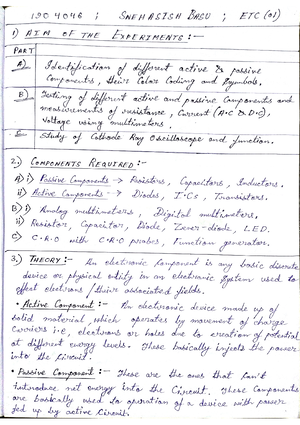 1904046 ; SNEHASISH BASU ; ETC (01)
1) AIM OF THE EXPERIMENTS :-
PART
A) Identification of different active & passive
Components, their Color Coding and Symbols.
B) Testing of different active and passive Components and
measurements of resistance, Current (A.C & D.C),
Voltage using multimeters.
Study of Cathode Ray Oscilloscope and function.
2.) COMPONENTS REQUIRED :-
A) i) Passive Components → Resistors, Capacitors, Inductors.
ii) Active Components → Diodes, I-Cs, Transistors.
B) i) Analog multimeters, Digital multimeters,
ii) Resistor, Capacitor, Diode, Zener-diode, LED.
C) C-R-O with C-R-O probes, Function generator.
3.) THEORY :- An electronic Component is any basic discrete
device or physical entity in an electronic system used to
affect electrons / their associated fields.
• Active Component :- An electronic device made up of
solid material which operates by movement of charge
Carriers i.e, electrons or holes due to creation of potential
at different energy levels. These basically injects the power
into the Circuit.
• Passive Component :- These are the ones that Can't
introduce net energy into the Circuit. These Components
are basically used to operation of a device with power
fed up by active Circuit.